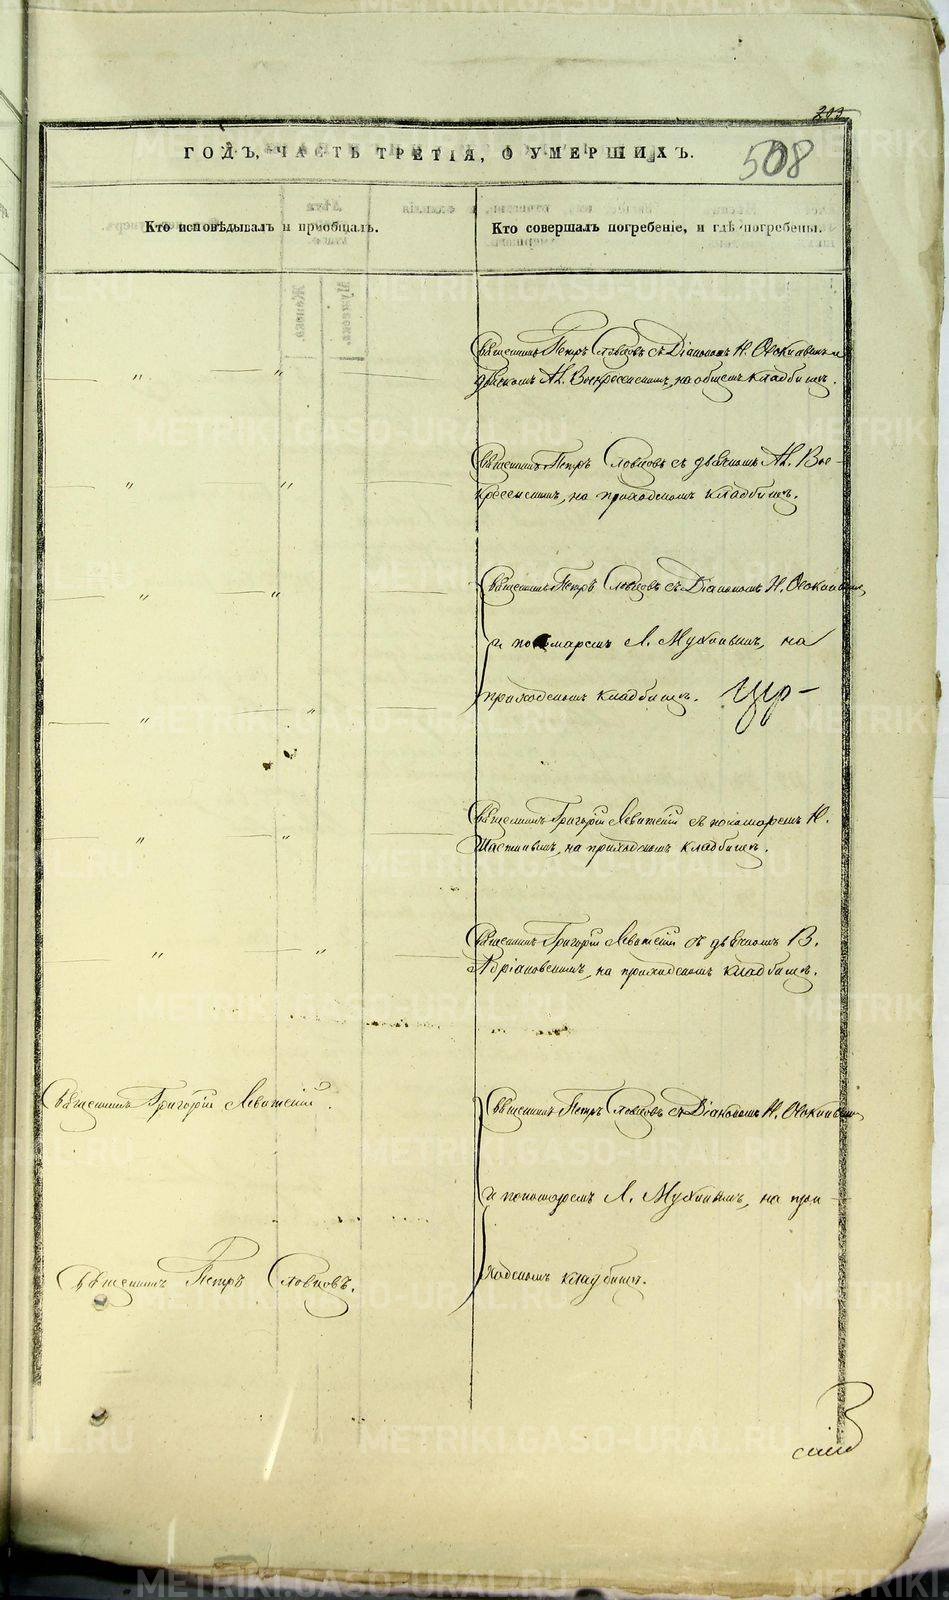 203
ГОДЪ, ЧАСТЬ ТРЕТІЯ, О УМЕРШИХЪ.
508
Кто исповѣдывалъ и пріобщалъ.
Кто совершалъ погребеніе, и гдѣ погребены.
Священникъ Петръ Словцовъ съ Діакономъ Н. и
дьячкомъ Ал. Воскресенскимъ, на общемъ кладбищѣ.
Священникъ Петръ Словцовъ съ дьячкомъ Ал. Вос-
кресенскимъ, на приходскомъ кладбищѣ.
Священникъ Петръ Словцовъ съ Діакономъ Н.
и пономаремъ Л. Мухинымъ, на
приходскомъ кладбищѣ.
Священникъ Григорій Левитскій съ пономаремъ Н.
на приходскомъ кладбищѣ.
Священникъ Григорій Левитскій съ дьячкомъ В.
Адріановскимъ, на приходскомъ кладбищѣ.
Священникъ Григорій Левитскій.
Священникъ Петръ Словцовъ съ Діакономъ Н.
и пономаремъ Л. Мухинымъ, на при-
Священникъ Петръ Словцовъ.
ходскомъ кладбищѣ.
METRIKI.GASO-URAL.RU